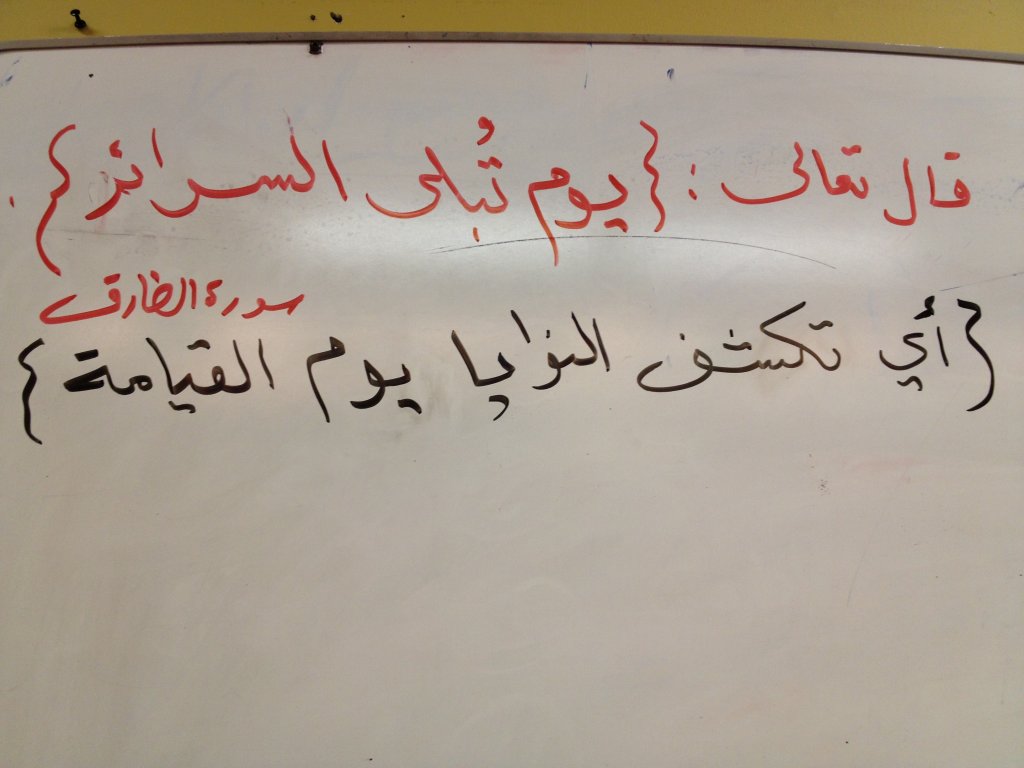 قال تعالى : {يوم تُبلى السرائر} .
سورة الطارق
{أي تكشف النوايا يوم القيامة}